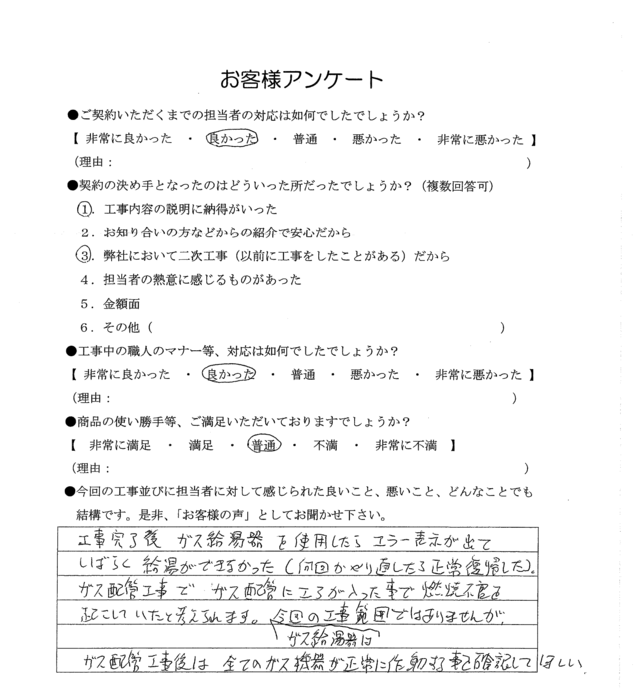 お客様アンケート
●ご契約いただくまでの担当者の対応は如何でしたでしょうか？
【 非常に良かった ・ 良かった ・ 普通 ・ 悪かった ・ 非常に悪かった 】
（理由： ）
●契約の決め手となったのはどういった所だったでしょうか？（複数回答可）
１．工事内容の説明に納得がいった
２．お知り合いの方などからの紹介で安心だから
３．弊社において二次工事（以前に工事をしたことがある）だから
４．担当者の熱意に感じるものがあった
５．金額面
６．その他（ ）
●工事中の職人のマナー等、対応は如何でしたでしょうか？
【 非常に良かった ・ 良かった ・ 普通 ・ 悪かった ・ 非常に悪かった 】
（理由： ）
●商品の使い勝手等、ご満足いただいておりますでしょうか？
【 非常に満足 ・ 満足 ・ 普通 ・ 不満 ・ 非常に不満 】
（理由： ）
●今回の工事並びに担当者に対して感じられた良いこと、悪いこと、どんなことでも
結構です。是非、「お客様の声」としてお聞かせ下さい。
工事完了後 ガス給湯器を使用したら エラー表示が出て
しばらく 給湯ができなかった（何回かやり直したら正常復帰した）。
ガス配管工事で ガス配管にエアが入った事で 燃焼不良を
起こしていたと考えられます。今回の工事範囲ではありませんが、
ガス給湯器は
ガス配管工事後は 全てのガス機器が正常に作動する事を確認してほしい